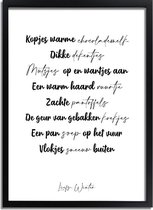 Kopjes warme chocolademelk
Dikke dekentjes
Mutsjes op en wantjes aan
Een warm haard vuurtje
Zachte pantoffels
De geur van gebakken koekjes
Een pan soep op het vuur
Vlokjes sneeuw buiten
Liefs, Winter